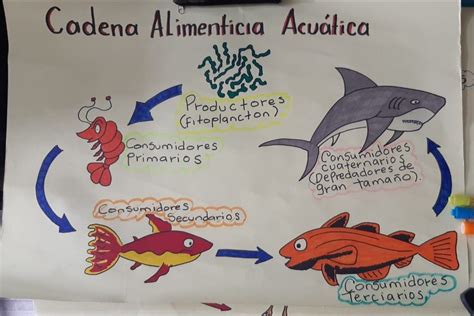 Cadena Alimenticia Acuática
Productores
(Fitoplancton)
Consumidores
Primarios
Consumidores
Secundarios
Consumidores
Terciarios
Consumidores
cuaternarios
(Depredadores de
gran tamaño).